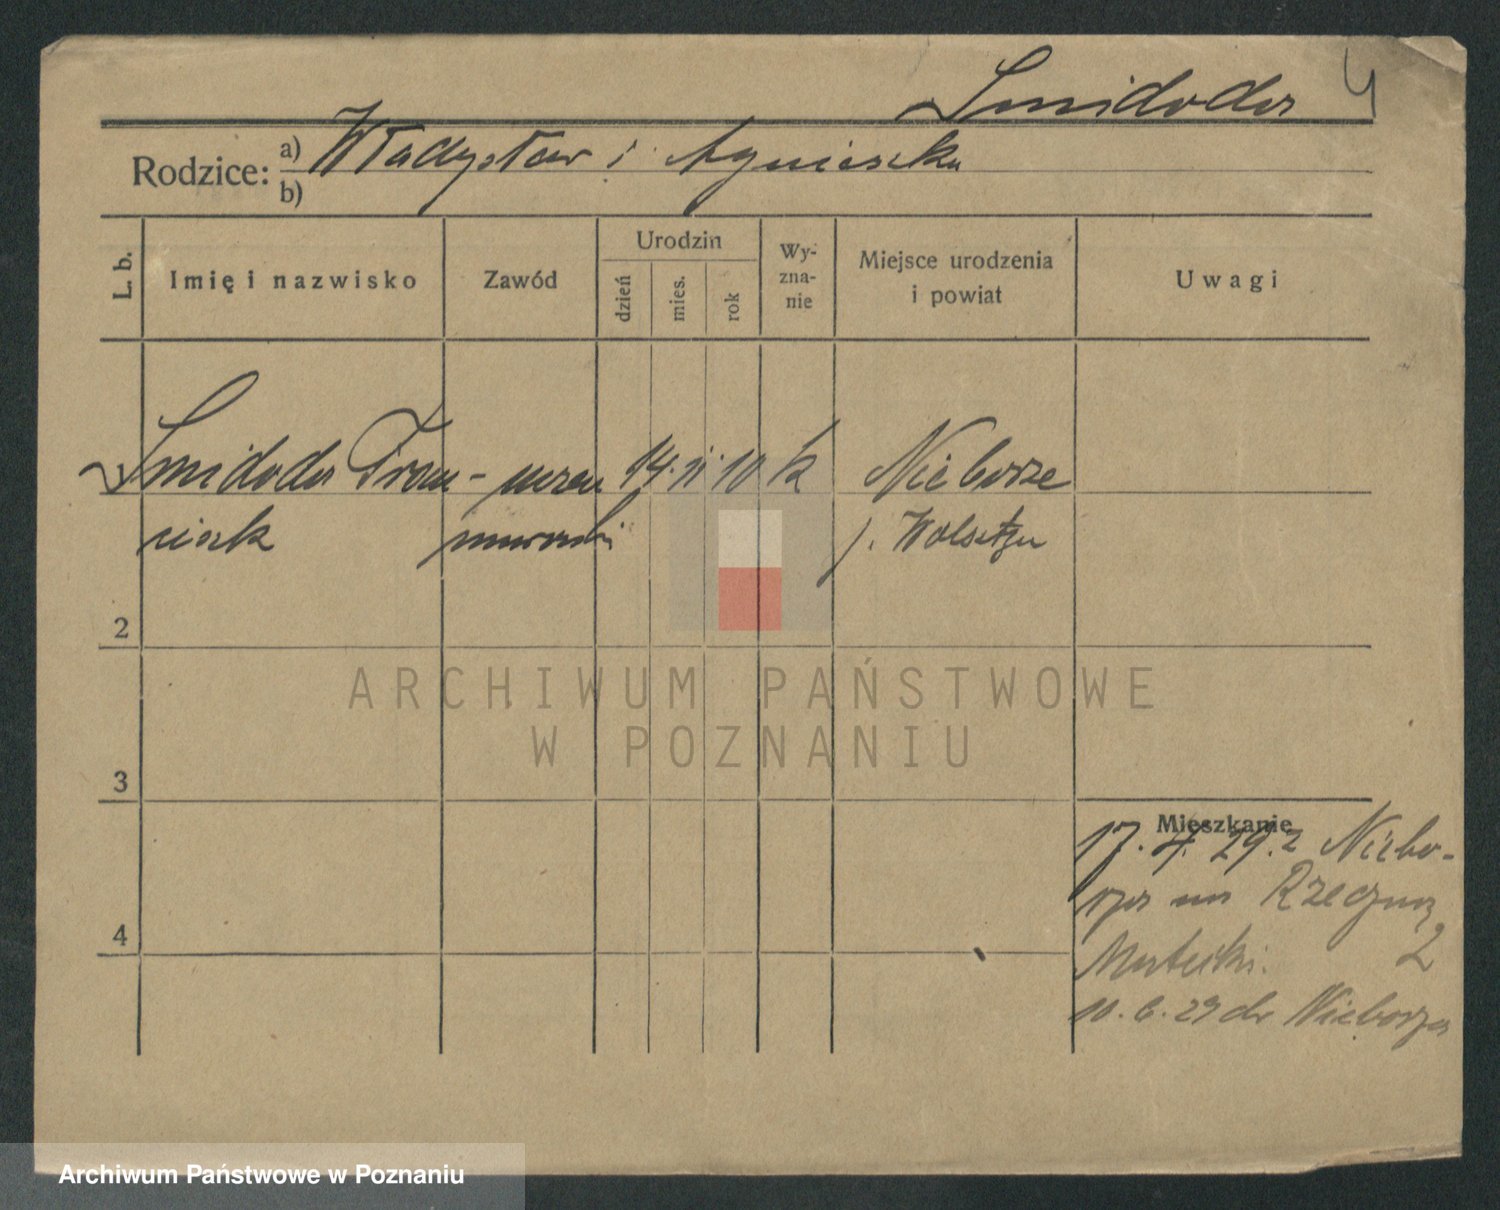 Smidoda 4
Rodzice: a) Władysław i Agnieszka
b)
L. b. Imię i nazwisko Zawód Urodzin dzień mies. rok Wy-zna-nie Miejsce urodzenia i powiat Uwagi
Smidoda Fran- uczeń 14. 11. 10 k Nieborze
ciszek murarski p. Wolsztyn
2
3
Mieszkanie
17. 4. 29. z Niebo-
rza na Rzeczną
4
Matecki. 2
10. 6. 29 do Nieborza
ARCHIWUM PAŃSTWOWE
W POZNANIU
Archiwum Państwowe w Poznaniu